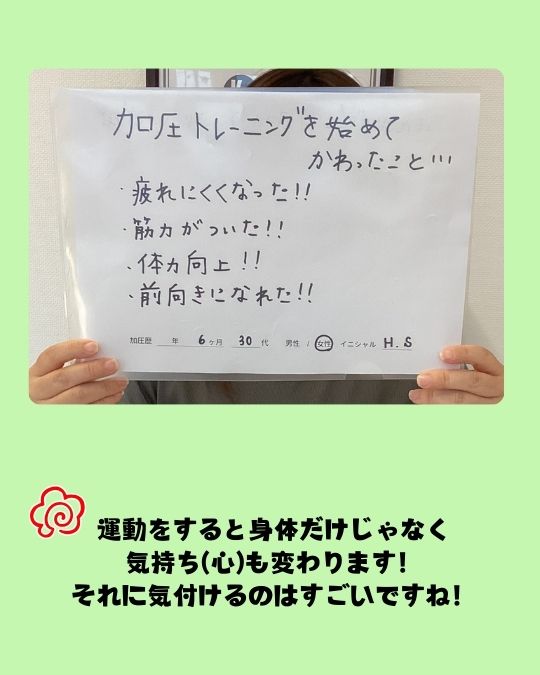 加圧トレーニングを始めて
かわったこと…
・疲れにくくなった!!
・筋力がついた!!
・体力向上!!
・前向きになれた!!
加圧歴 年 6ヶ月 30代 男性 / 女性 イニシャル H.S
運動をすると身体だけじゃなく
気持ち(心)も変わります!
それに気付けるのはすごいですね!